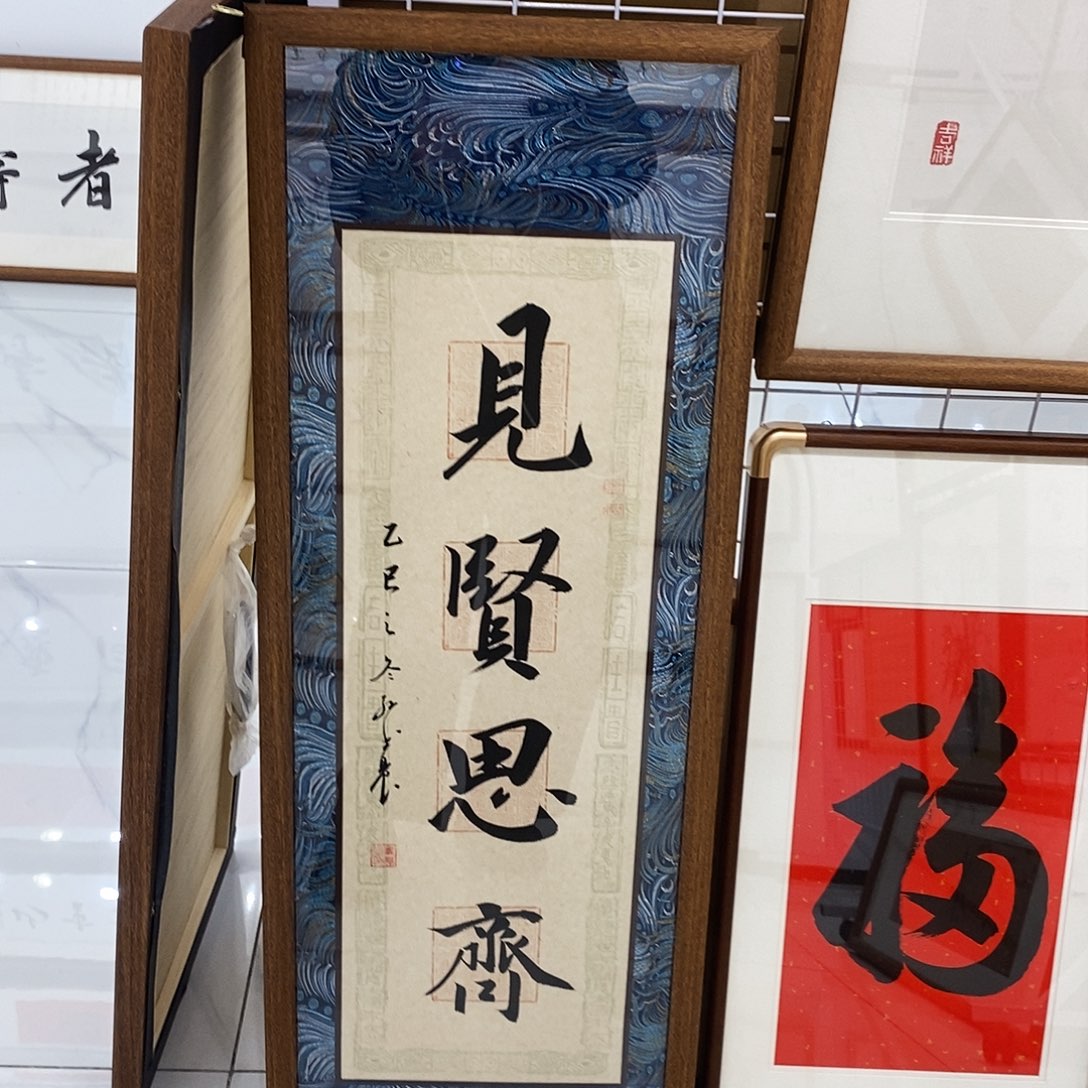 者
見賢思齊
乙巳之冬
吉祥
福